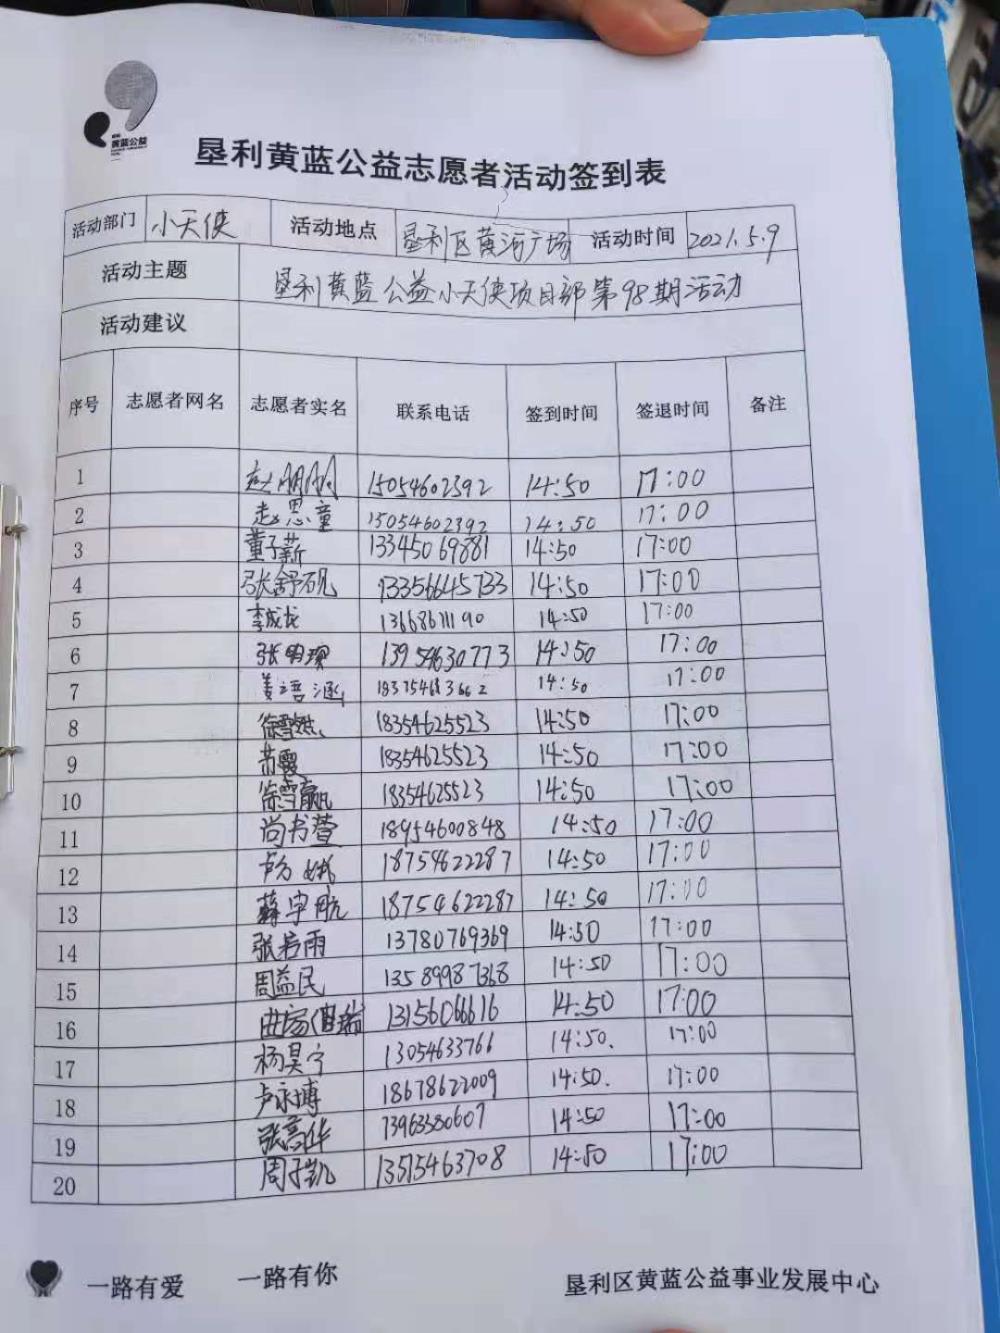 黄蓝公益
垦利黄蓝公益志愿者活动签到表
活动部门 小天使 活动地点 垦利区黄河广场 活动时间 2021.5.9
活动主题 垦利黄蓝公益小天使项目部第98期活动
活动建议
序号 志愿者网名 志愿者实名 联系电话 签到时间 签退时间 备注
1 赵明明 15054602392 14:50 17:00
2 赵思童 15054602392 14:50 17:00
3 董子薪 13345069881 14:50 17:00
4 张舒砚 13356645733 14:50 17:00
5 李成龙 13668611190 14:50 17:00
6 张明 13954630773 14:50 17:00
7 姜语涵 14:50 17:00
8 徐雪 18354625523 14:50 17:00
9 18354625523 14:50 17:00
10 徐雪 18354625523 14:50 17:00
11 尚书萱 18954600848 14:50 17:00
12 18754622287 14:50 17:00
13 薛宇航 18754622287 14:50 17:00
14 张若雨 13780769369 14:50 17:00
15 周益民 13589987368 14:50 17:00
16 13156066616 14:50 17:00
17 杨昊宁 13054633766 14:50. 17:00
18 卢永博 18678622009 14:50. 17:00
19 张高华 13963380607 14:50 17:00
20 周子凯 13515463708 14:50 17:00
一路有爱 一路有你 垦利区黄蓝公益事业发展中心